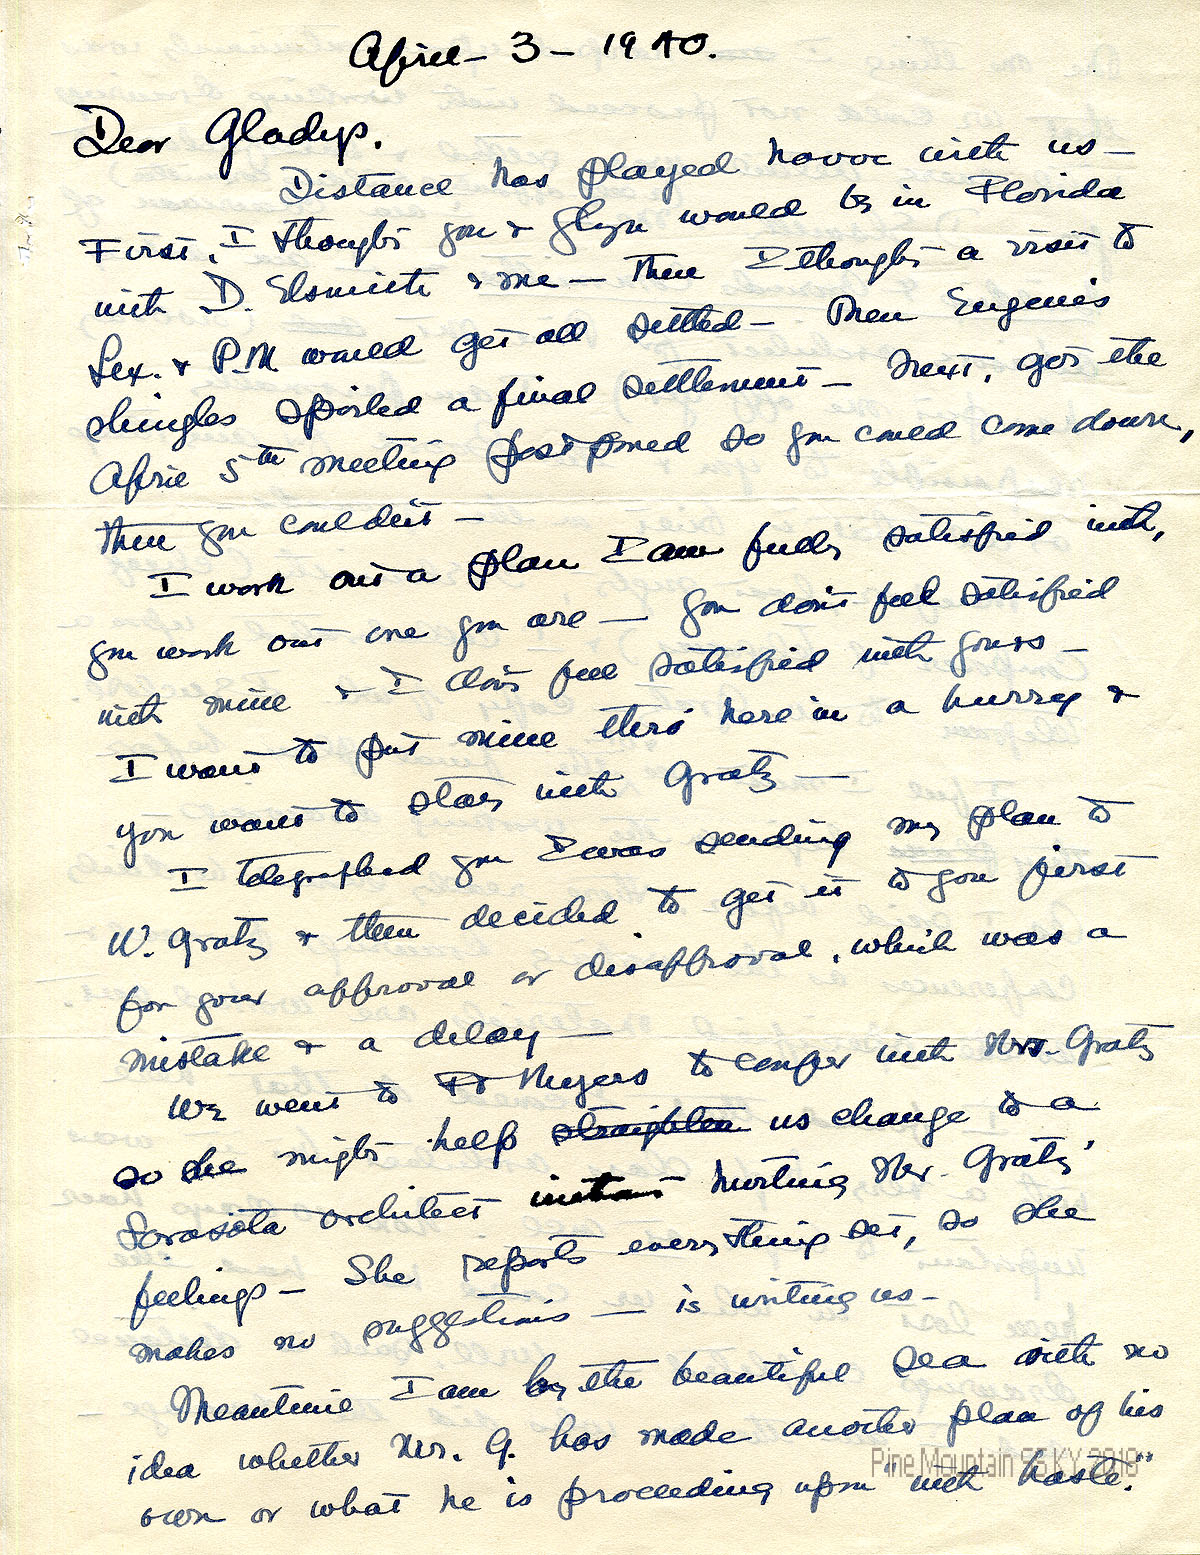 April - 3 - 1940.
Dear Gladys.
Distance has played havoc with us —
First, I thought you & Glyn would be in Florida
with D. Elsmith & me — Then I thought a visit to
Lex. & P.M would get all settled — Then Eugenie's
shingles spoiled a final settlement — Next, got the
April 5th meeting postponed so you could come down,
then you couldn't —
I work out a plan I am fully satisfied with,
you work out one you are — you don't feel satisfied
with mine & I don't feel satisfied with yours —
I want to put mine thro' here in a hurry &
you want to stay with Gratz —
I telegraphed you I was sending my plan to
W. Gratz & then decided to get it to you first
for your approval or disapproval, which was a
mistake & a delay —
We went to Ft Myers to confer with Mrs. Gratz
so she might help straighten us change to a
Sarasota architect without hurting Mr. Gratz'
feelings — She reports everything set, so she
makes no suggestions — is writing us —
Meantime I am by the beautiful sea with no
idea whether Mr. G. has made another plan of his
own or what he is proceeding upon "with haste."
Pine Mountain SS KY 2018